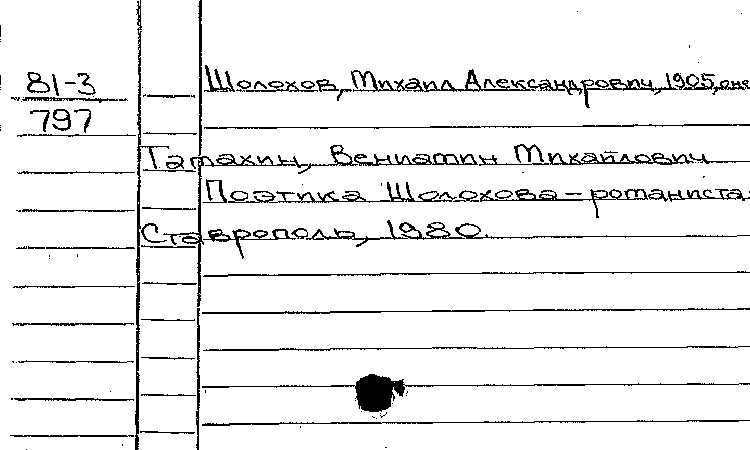 81-3 Шолохов, Михаил Александрович, 1905, оне
797
Тамахин, Вениамин Михайлович
Поэтика Шолохова – романиста.
Ставрополь, 1980.